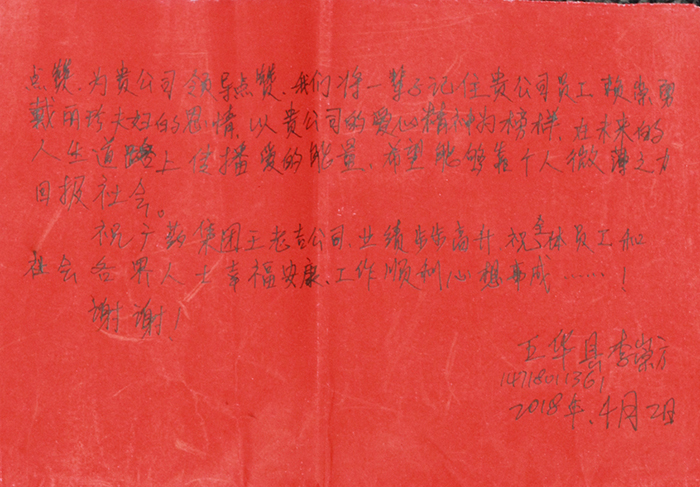 点赞、为贵公司领导点赞、我们将一辈子记住贵公司员工赖
戴 夫妇的恩情，以贵公司的爱心精神为榜样，在未来的
人生道路上传播爱的能量，希望能够靠个人微薄之力
回报社会。
祝广药集团王老吉公司，业绩步步高升 祝全体员工和
社会各界人士幸福安康、工作顺利心想事成……！
谢谢！
五华县李
14718011361
2018年、4月2日